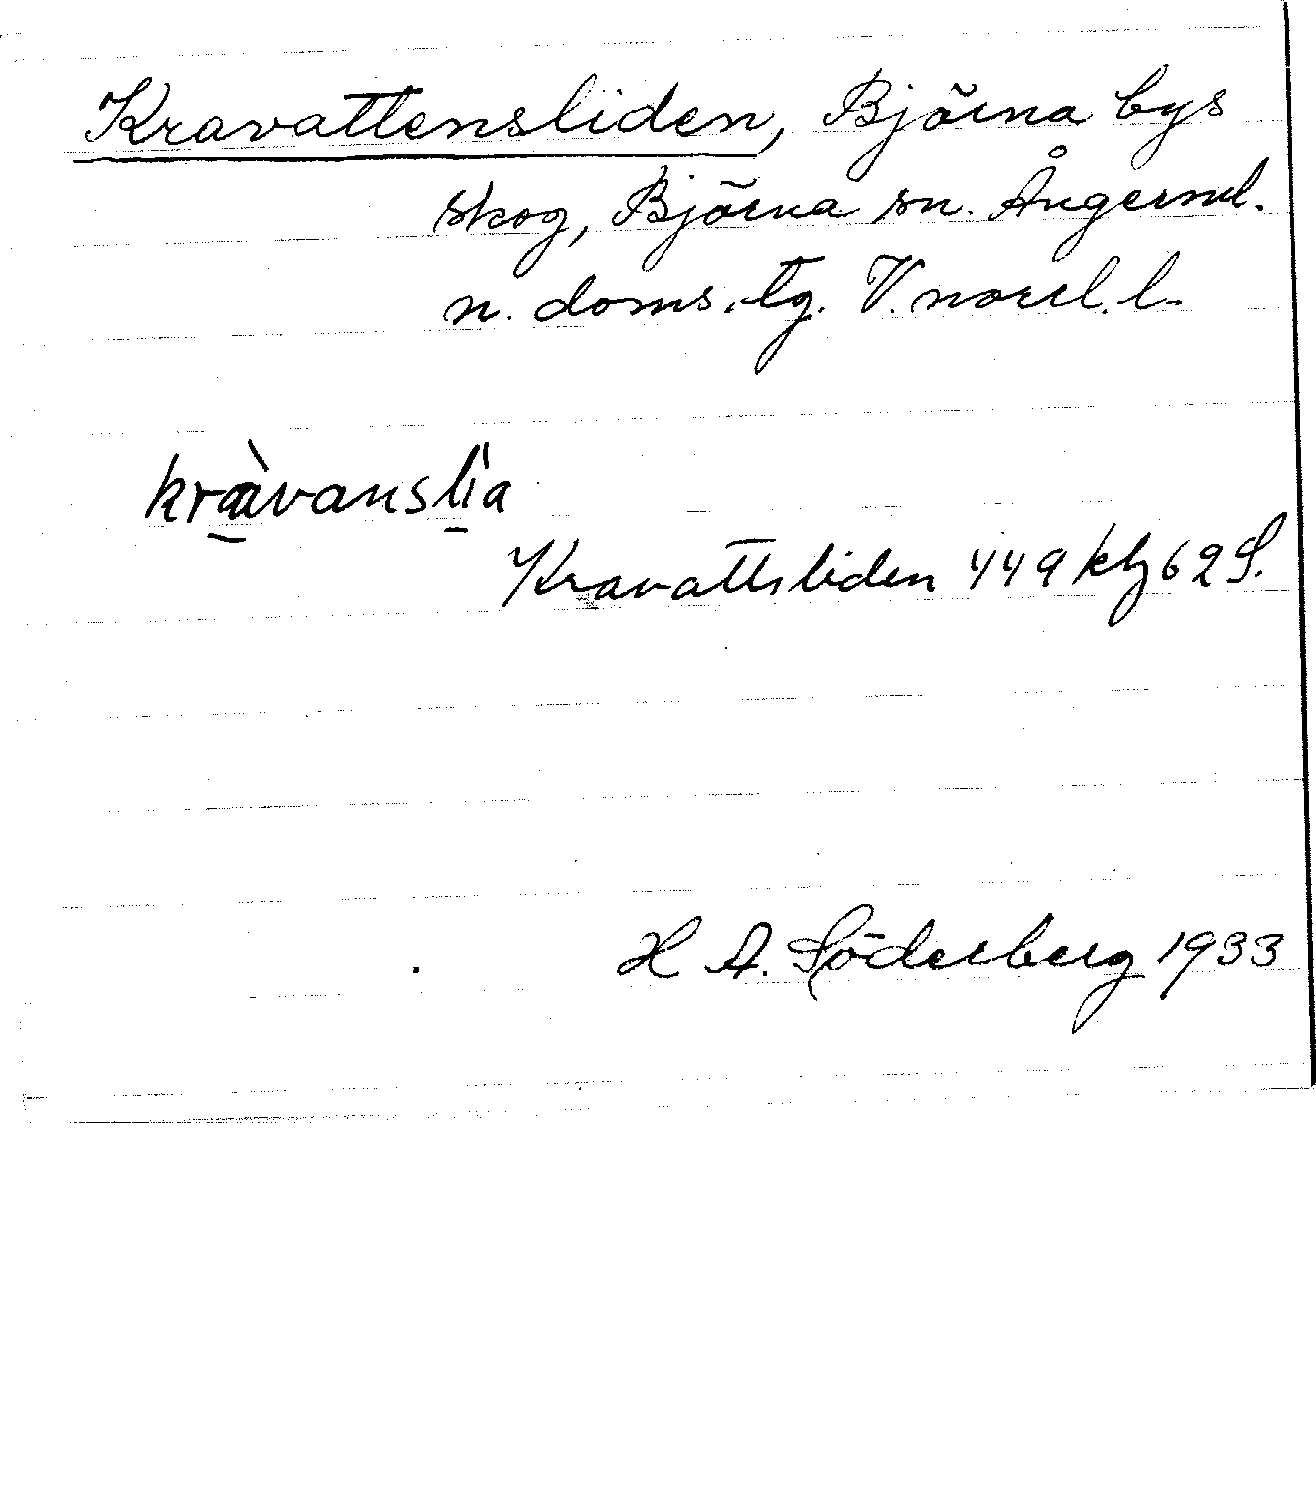 Kravattensliden, Björna bys
skog, Björna sn. Ångerml.
n. doms.tg. V.norrl.l.
kràvanslìa
Kravattsliden 449 klg 62 S.
H A. Söderberg 1933